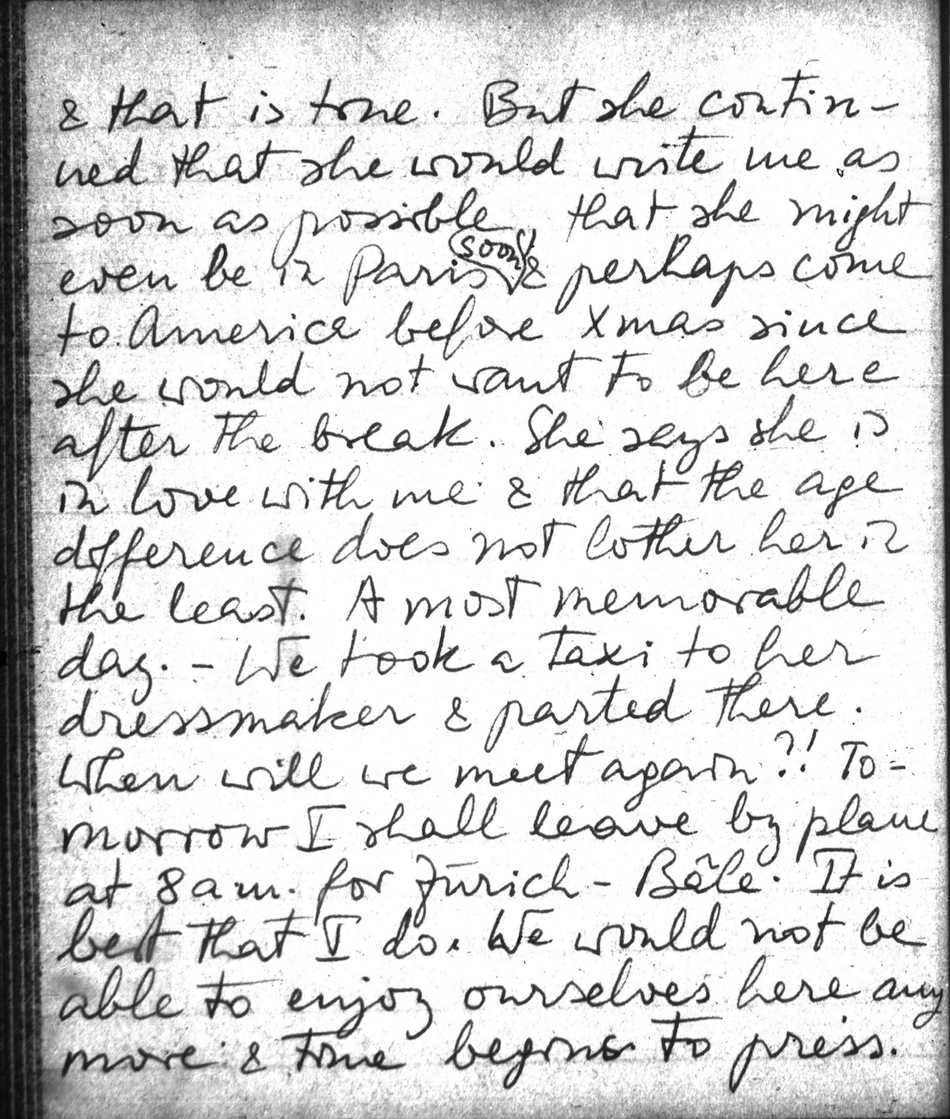 & that is true. But she contin-
ued that she would write me as
soon as possible, that she might
even be in Paris soon & perhaps come
to America before Xmas since
she would not want to be here
after the break. She says she is
in love with me & that the age
difference does not bother her in
the least. A most memorable
day. – We took a taxi to her
dressmaker & parted there.
When will we meet again?! To-
morrow I shall leave by plane
at 8 am. for Zürich – Bâle. It is
best that I do. We would not be
able to enjoy ourselves here any
more & time begins to press.